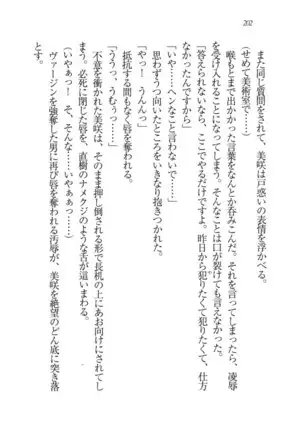 202
また同じ質問をされて、美咲は戸惑いの表情を浮かべる。
(せめて美術室で……)
喉もとまで出かかった言葉をなんとか呑みこんだ。それを言ってしまったら、凌辱
を受け入れることになってしまう。そんなことは口が裂けても言えない。
「答えられないなら、ここでやるだけですよ。昨日から犯りたくて犯りたくて、仕方
なかったんですから」
「いや……ヘンなこと言わないで……」
思わずうつ向いたところをいきなり抱きつかれた。
「やっ！　うんんっ」
抵抗する間もなく唇を奪われる。
「ううっ、うむぅっ……」
不意を衝かれた美咲は、そのまま押し倒される形で長机の上にあお向けにされてし
まう。必死に閉じた唇を、直樹のナメクジのような舌が這いまわる。
(いやぁっ！　そ、そんな……いやぁぁっ……)
ヴァージンを強奪した男に再び唇を奪われる汚辱が、美咲を絶望のどん底に突き落
とす。